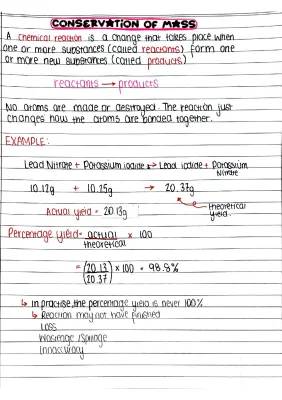 CONSERVATION OF MASS
A chemical reaction is a change that takes place when
one or more substances (called reactants) form one
or more new substances (called products)
reactants → products
No atoms are made or destroyed. The reaction just
changes how the atoms are bonded together.
EXAMPLE:
Lead Nitrate + Potassium iodide → Lead iodide + Potassium
Nitrate
10.12g + 10.25g → 20.37g
Actual yield = 20.13g
theoretical
yield.
Percentage yield = actual × 100
theoretical
= (20.13) × 100 = 98.8%
(20.37)
↳ In practise, the percentage yield is never 100%
↳ Reaction may not have finished
Loss
Wastage/Spillage
Innaccuracy